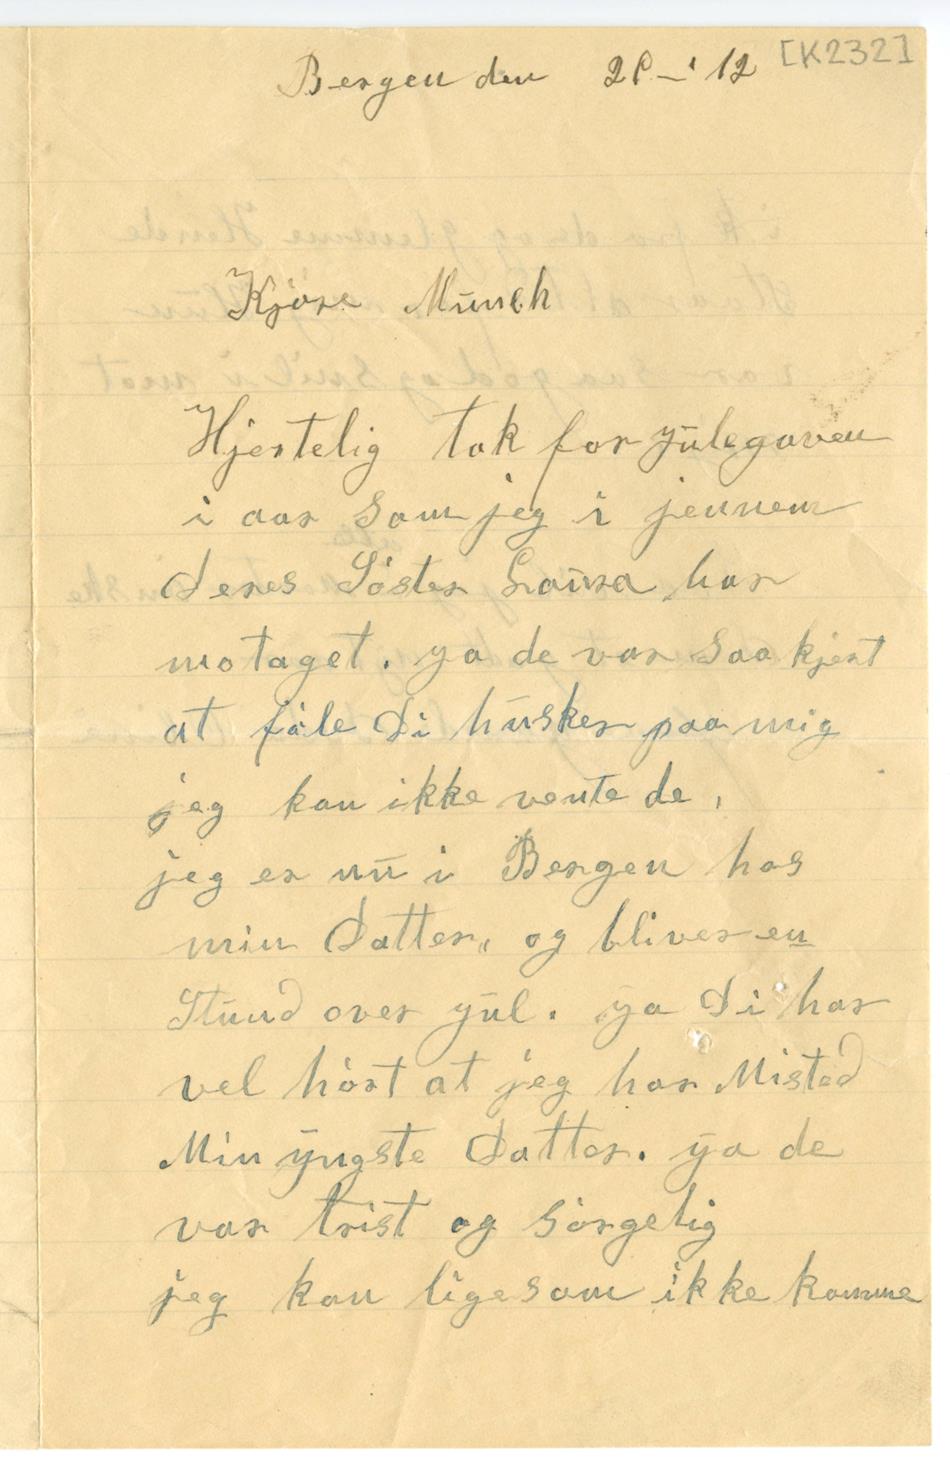 [K232]
Bergen den 28–'12
Kjøre Munch
Hjertelig tak for yulegaven
i aar Som jeg i jennem
deres Søster Laura har
motaget. ya de var Saa kjert
at føle Di husker paa mig
jeg kan ikke vente de,
jeg er nu i Bergen hos
min Datter, og bliver en
Stund over yul. ya Di har
vel hørt at jeg har Misted
Min yngste Datter. ya de
var trist og sørgelig
jeg kan ligesom ikke komme